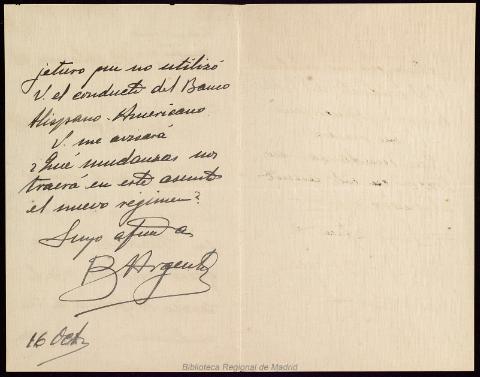 jeturo que no utilizó
V. el conducto del Banco
Hispano-Americano.
V. me avisará
¿Qué mudanzas nos
traerá en este asunto
el nuevo régimen?
Suyo afmo a.
B Argente
16 Oct.
Biblioteca Regional de Madrid